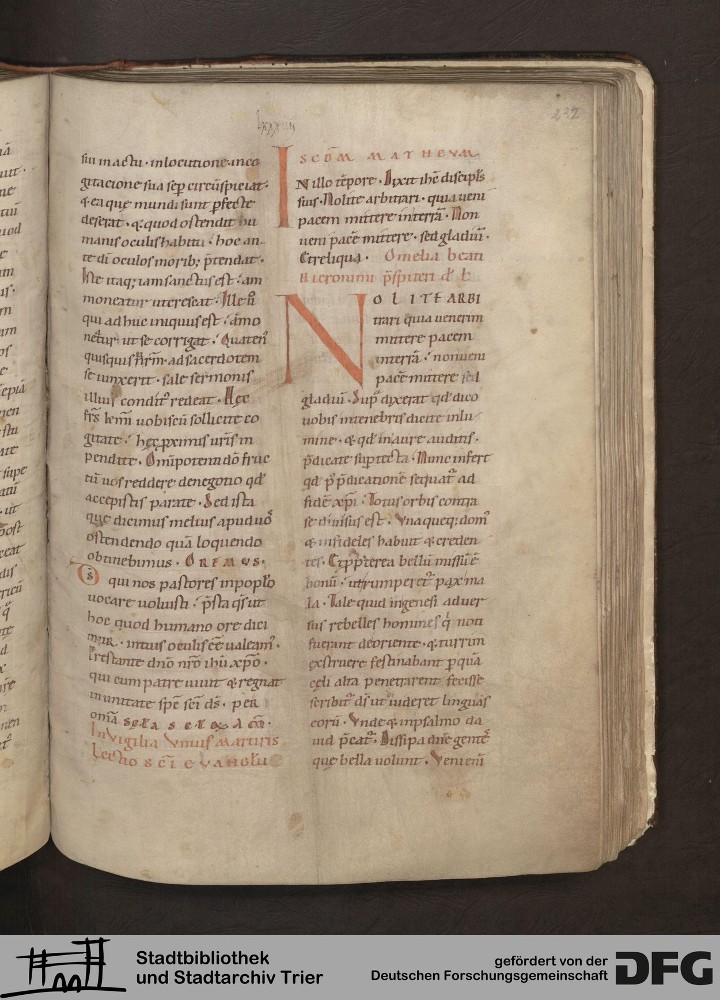 lxxxiiii
232
sui in actu · in locutione in co
gitacione sua sẽp circũspiciat ·
& ea que mundi sunt ꝑfecte
deserat · & quod ostendit hu
manis oculis habitu · hoc an
te dĩ oculos morib; p̃tendat ·
Iste itaq; iam sanctus est · am
moneatur ut crescat · Ille ũ
qui adhuc iniquus est · am̃o
neatur ut se corrigat · Quaten᷒
quisquis ad sacerdotem
se iunxerit · sale sermonis
illius condit᷒ redeat · Hęc
fr̃s km̃i uobiscũ sollicite co
gitate · hęc ꝓximis ur̃is in
pendite · Omnipotenti dõ fruc
tũ uos reddere de negotio qd̃
accepistis parate · Sed ista
quę dicimus melius apud uõ
ostendendo quã loquendo
obtinebimus · OREMUS ·
D̃s qui nos pastores in pop̃lo
uocare uoluisti · p̃sta q̃s ut
hoc quod humano ore dici
mur · intuis oculis ẽe ualeam᷒ ·
Prestante dnõ nr̃o ihũ xp̃o ·
qui cum patre uiuit & regnat
in unitate sp̃c sc̃i ds̃ · per
omĩa sẽla sẽloꝝ am̃ ·
In Vigilia Vnius Martiris
Lectio SC̃I EVANGLII
SCD̃M MATHEVM
IN illo tẽpore · Dixit ihc̃ discipl̃s
suis · Nolite arbitrari · quia ueni
pacem mittere in terrã · Non
ueni pacẽ mittere · sed gladiũ ·
Et reliqua · Omelia beati
Hieronimi p̃spiteri
NOLITE ARBI
trari quia uenerim
mittere pacem
in terrã · non ueni
pacẽ mittere sed
gladiũ · Sup᷒ dixerat qd̃ dico
uobis in tenebris dicite in lu
mine · & qd̃ in aure auditis ·
p̃dicate sup tecta · Nunc infert
qd̃ p᷒ p̃dicationẽ sequat᷒ ad
fidẽ xp̃i · Totus orbis contra
se diuisus est · Vnaqueq; dom᷒
& infideles habuit & creden
tes · Et ꝓpterea bellũ missũ ẽ
bonũ · ut rumperet᷒ pax ma
la · Tale quid in genesi aduer
sus rebelles homines q̃ moti
fuerant de oriente · & turrim
exstruere festinabant ꝑ quã
cęli alta penetrarent fecisse
scribit᷒ ds̃ ut diuideret linguas
eorũ · Vnde & in psalmo da
uid p̃cat᷒ · Dissipa dñe gentes
quę bella uolunt · Veni enĩ
Stadtbibliothek
und Stadtarchiv Trier
gefördert von der
Deutschen Forschungsgemeinschaft
DFG